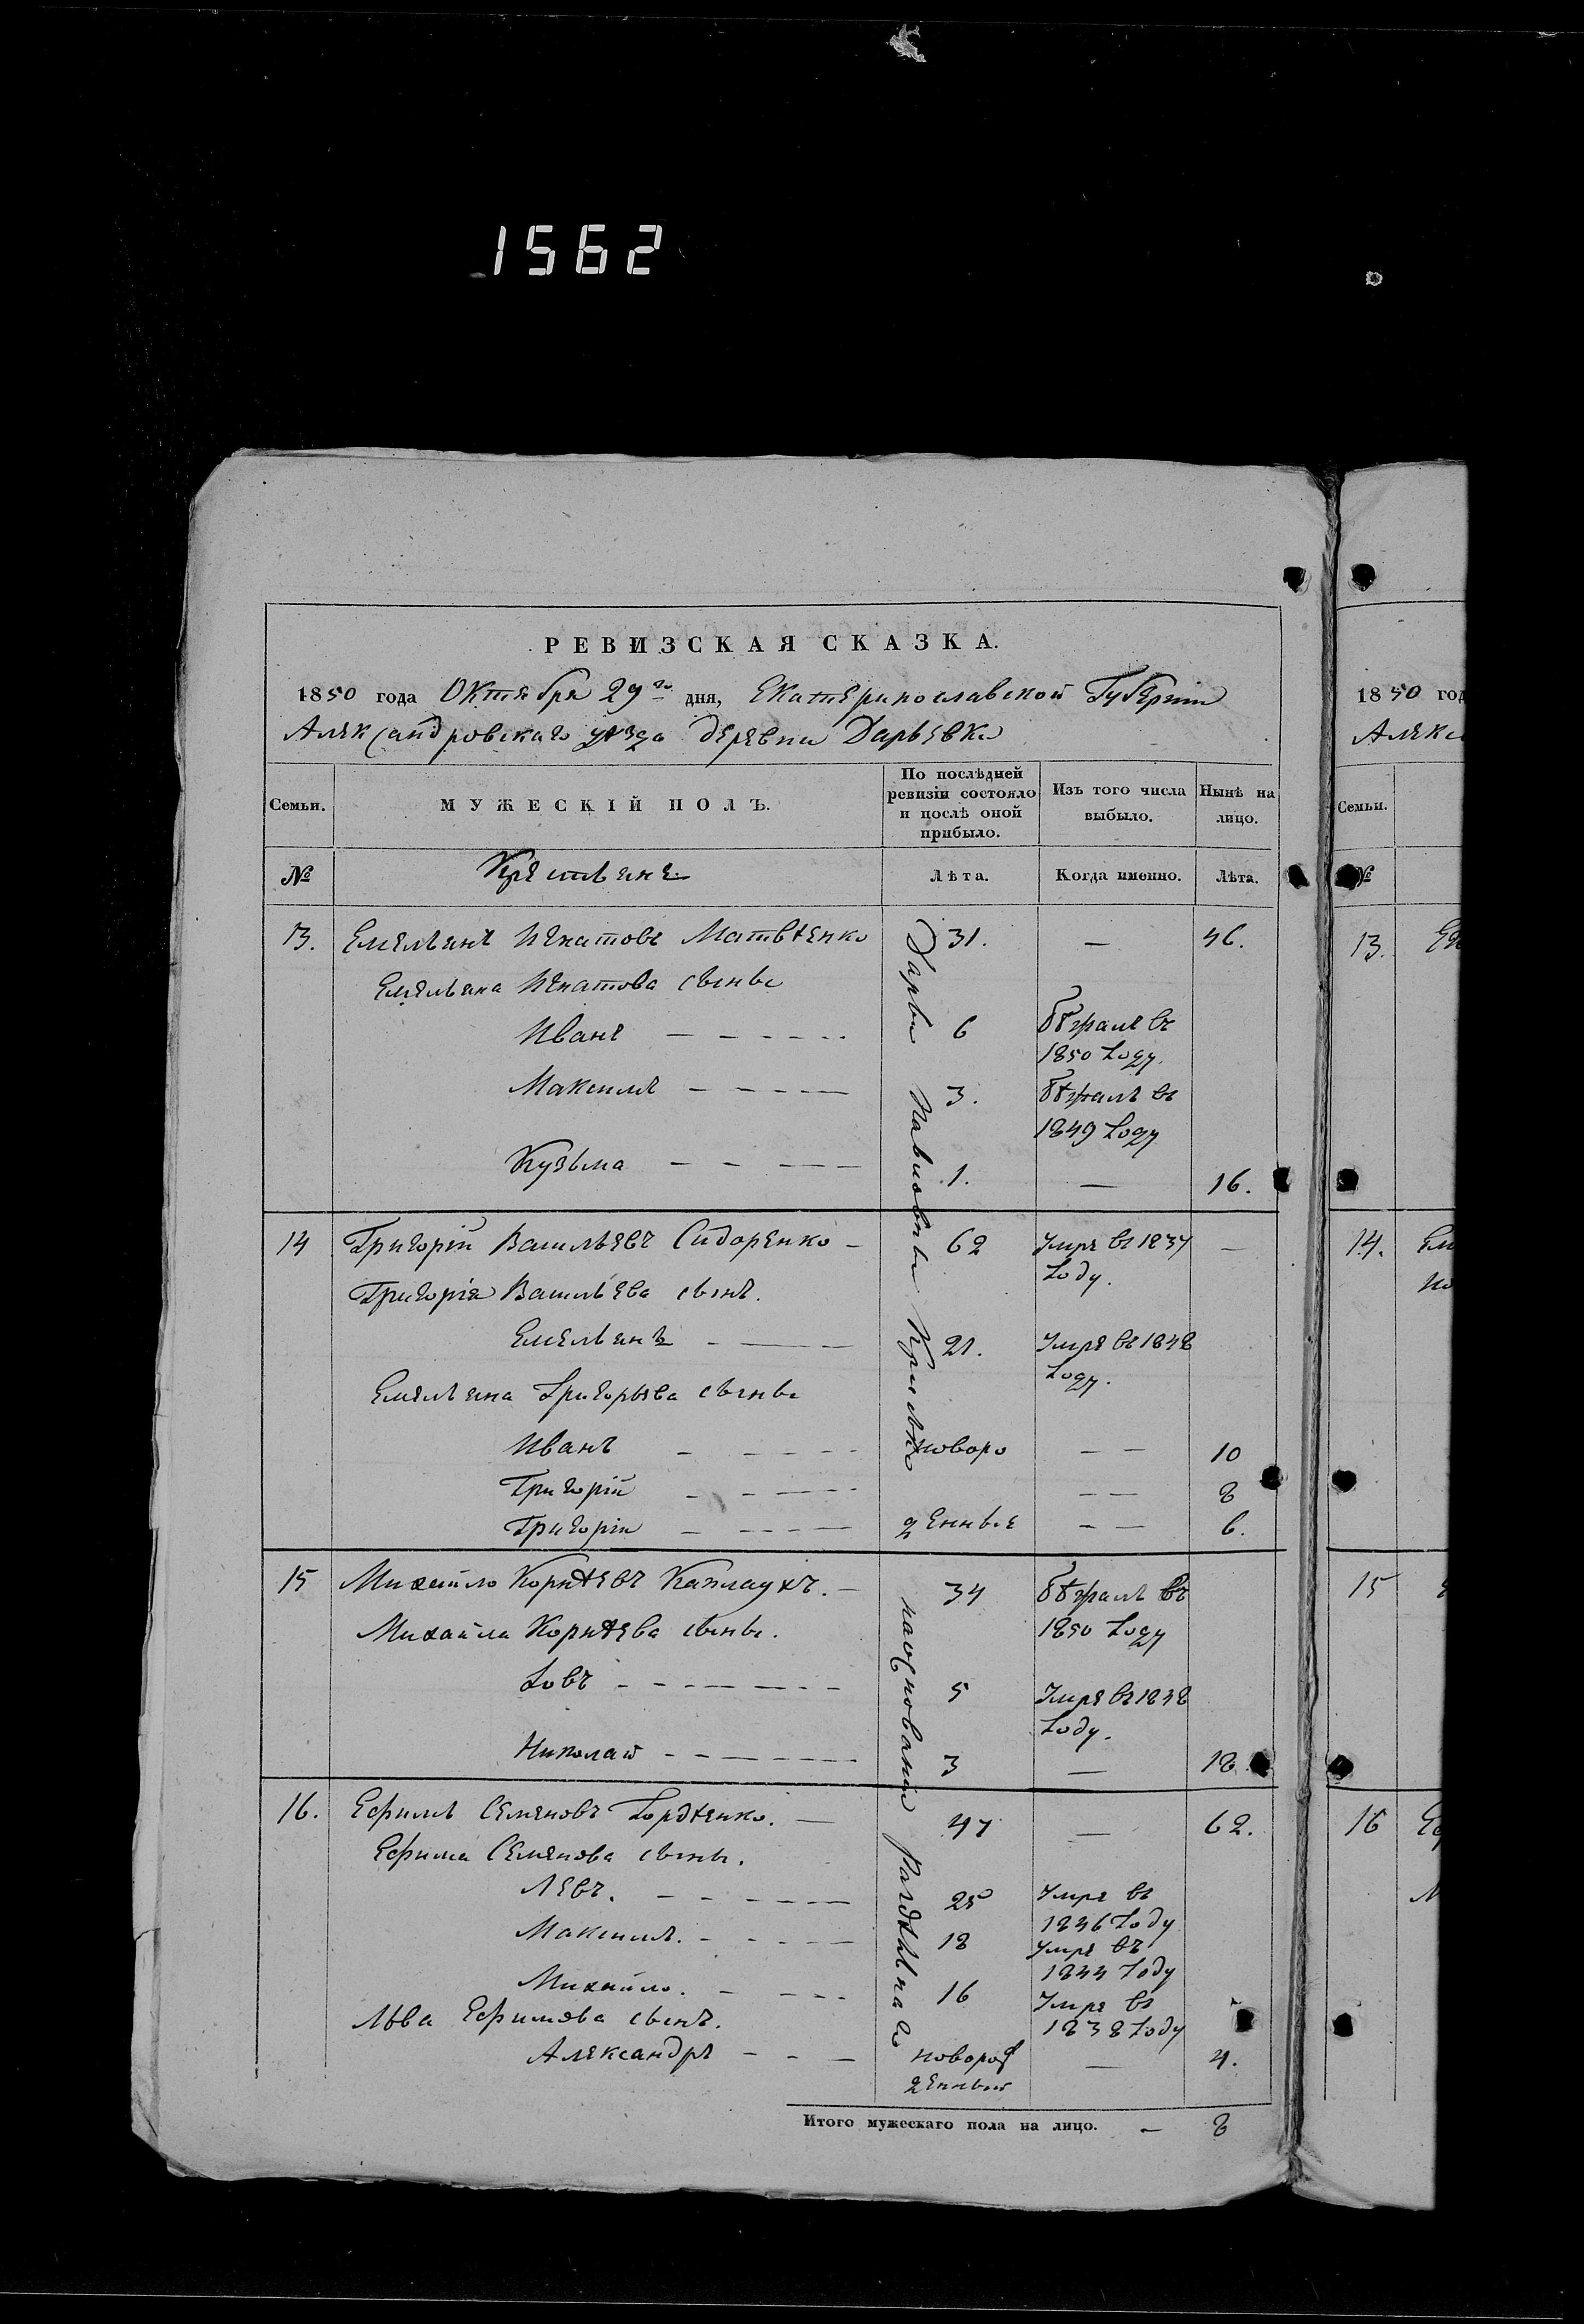 1562
РЕВИЗСКАЯ СКАЗКА.
1850 года Октября 29го дня, Екатеринославской Губерніи
Александровскаго уѣзда деревни Дарьевки
Семьи.
МУЖЕСКІЙ ПОЛЪ.
По послѣдней ревизіи состояло и послѣ оной прибыло.
Изъ того числа выбыло.
Нынѣ на лицо.
№
Крестьяне
Лѣта.
Когда именно.
Лѣта.
13. Емельянъ Игнатовъ Матвѣенко 31. — 46.
Емельяна Игнатова сыны
Иванъ 6 бѣжалъ въ 1850 году.
Максимъ 3. бѣжалъ въ 1849 году
Кузьма 1. — 16.
14 Григорій Васильевъ Сидоренко 62 Умре въ 1837 году. —
Григорія Васильева сынъ.
Емельянъ 21. Умре въ 1848 году.
Емельяна Григорьева сыны
Иванъ новоро — — 10
Григорій — — 8
Григорій жденные — — 6.
15 Михайло Корнѣевъ 34 бѣжалъ въ 1850 году
Михайла Корнѣева сыны.
Іовъ 5 Умре въ 1838 году.
Николай 3 — 18.
16. Ефимъ Семеновъ Гордѣенко. 47 — 62.
Ефима Семенова сыны.
Левъ. 25 Умре въ 1836 году
Максимъ. 18 Умре въ 1844 году
Михайло. 16 Умре въ 1838 году
Льва Ефимова сынъ.
Александръ новорож денный — 4.
Дарьи на основаніи раздѣльнаго
Итого мужескаго пола на лицо. — 8
1850 год
Алекс
Семьи.
№
13.
14.
15
16